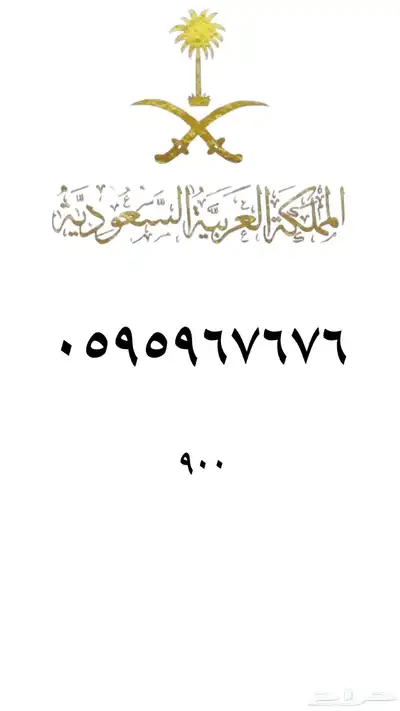 المملكة العربية السعودية
٠٥٩٥٩٦٧٦٧٦
٩٠٠
حراج